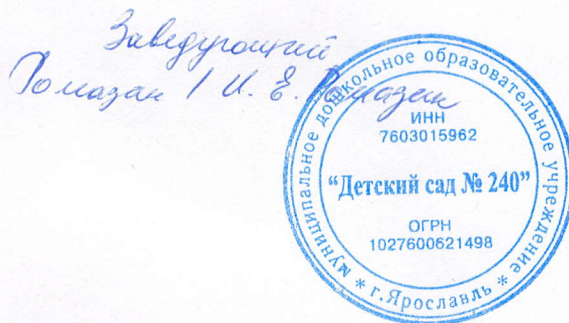 Заведующий
Ромазан / И. Е. Ромазан
муниципальное дошкольное образовательное учреждение
* г.Ярославль *
ИНН
7603015962
“Детский сад № 240”
ОГРН
1027600621498